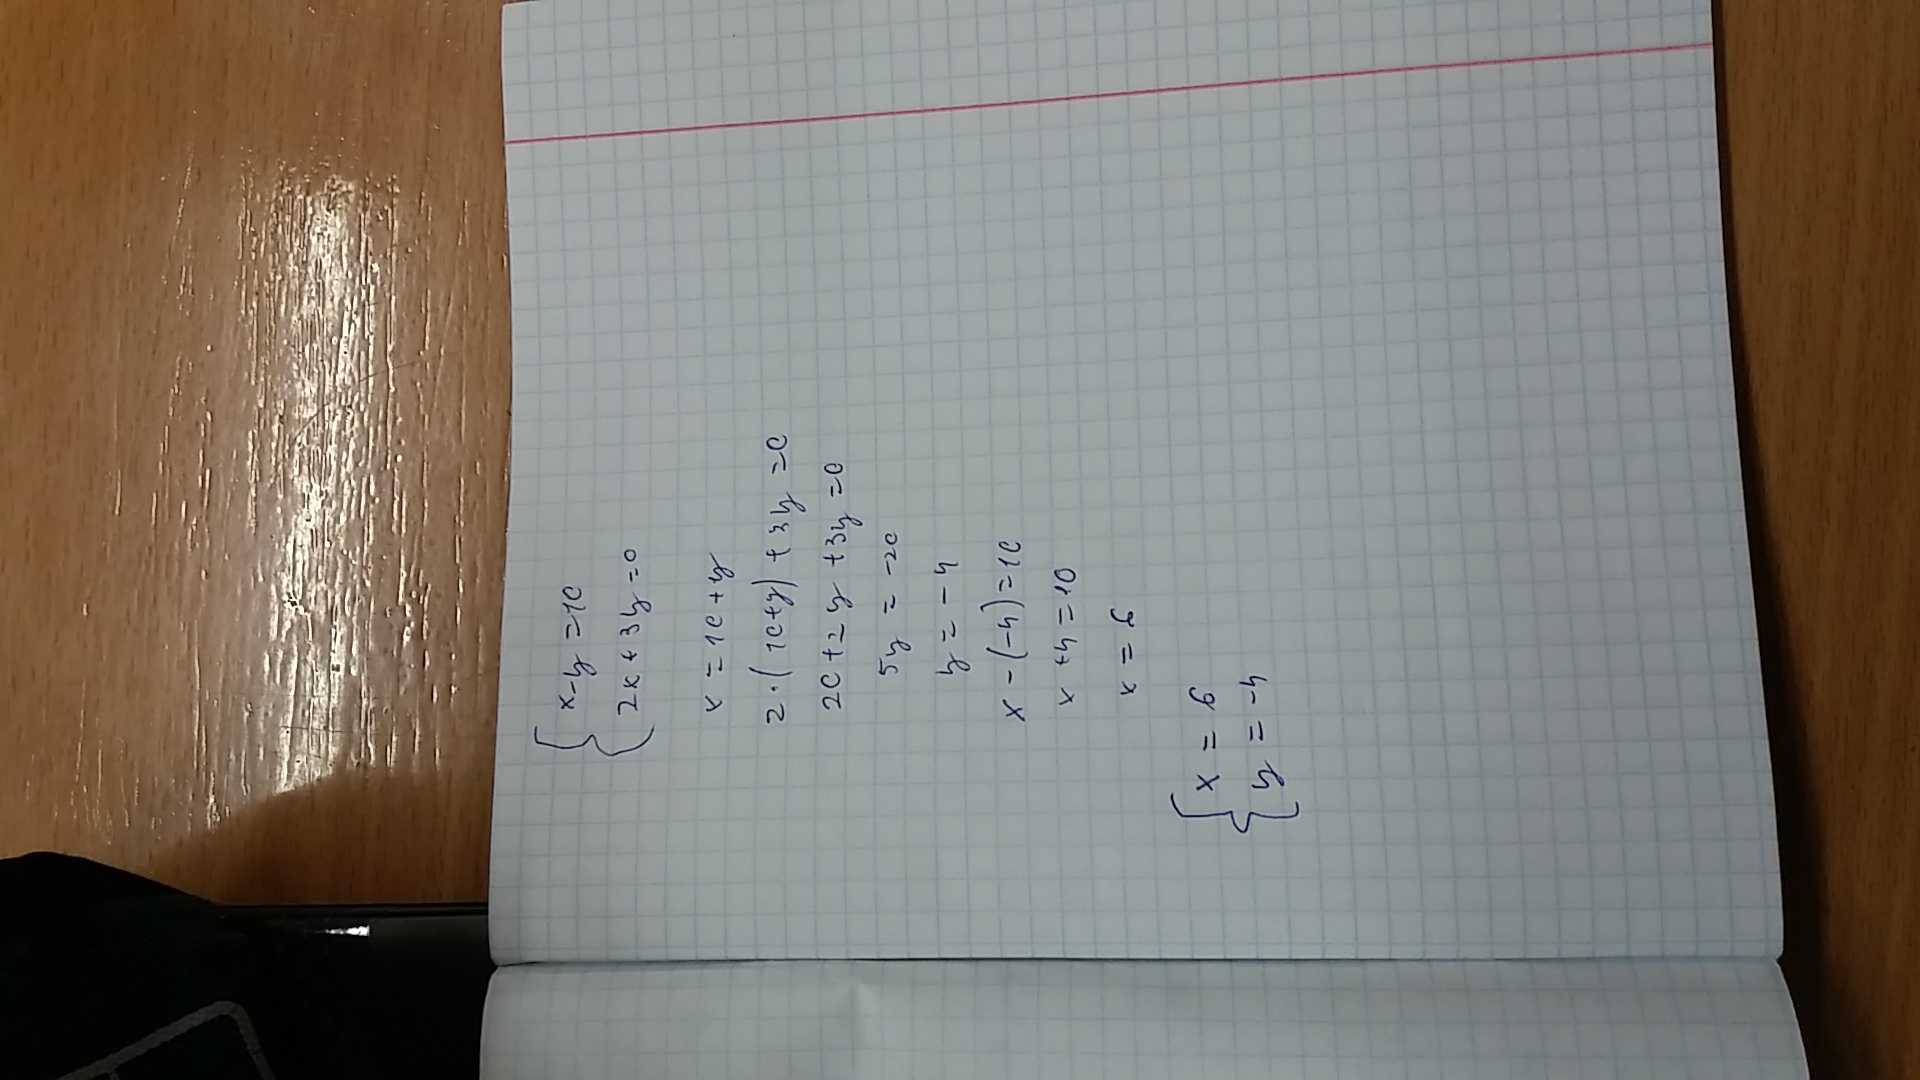 x-y=10
2x+3y=0
x=10+y
2·(10+y)+3y=0
20+2y+3y=0
5y=-20
y=-4
x-(-4)=10
x+4=10
x=6
x=6
y=-4